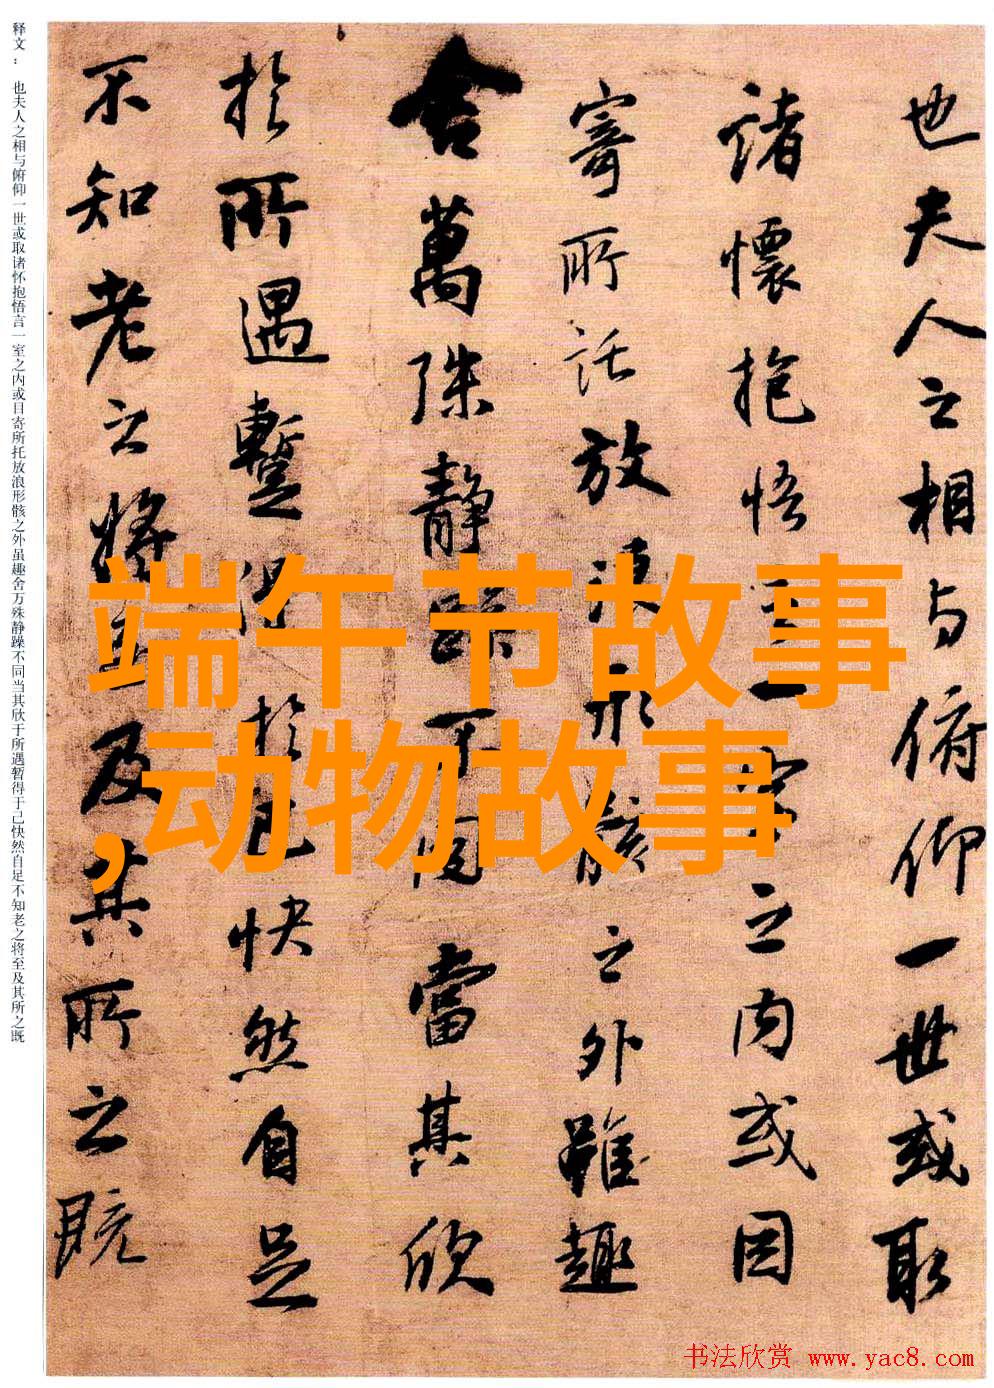 也夫人之相与俯仰一世或取
諸懷抱悟言一室之内或因
寄所託放浪形骸之外雖趣
舍萬殊静躁不同當其欣
於所遇暫得於己快然自足
不知老之將至及其所之既
释文： 也夫人之相与俯仰一世或取诸怀抱悟言一室之内或目寄所托放浪形骸之外虽趣舍万殊静躁不同当其欣于所遇暂得于己快然自足不知老之将至及其所之既
端午节故事
,动物故事
书法欣赏 www.yac8.com